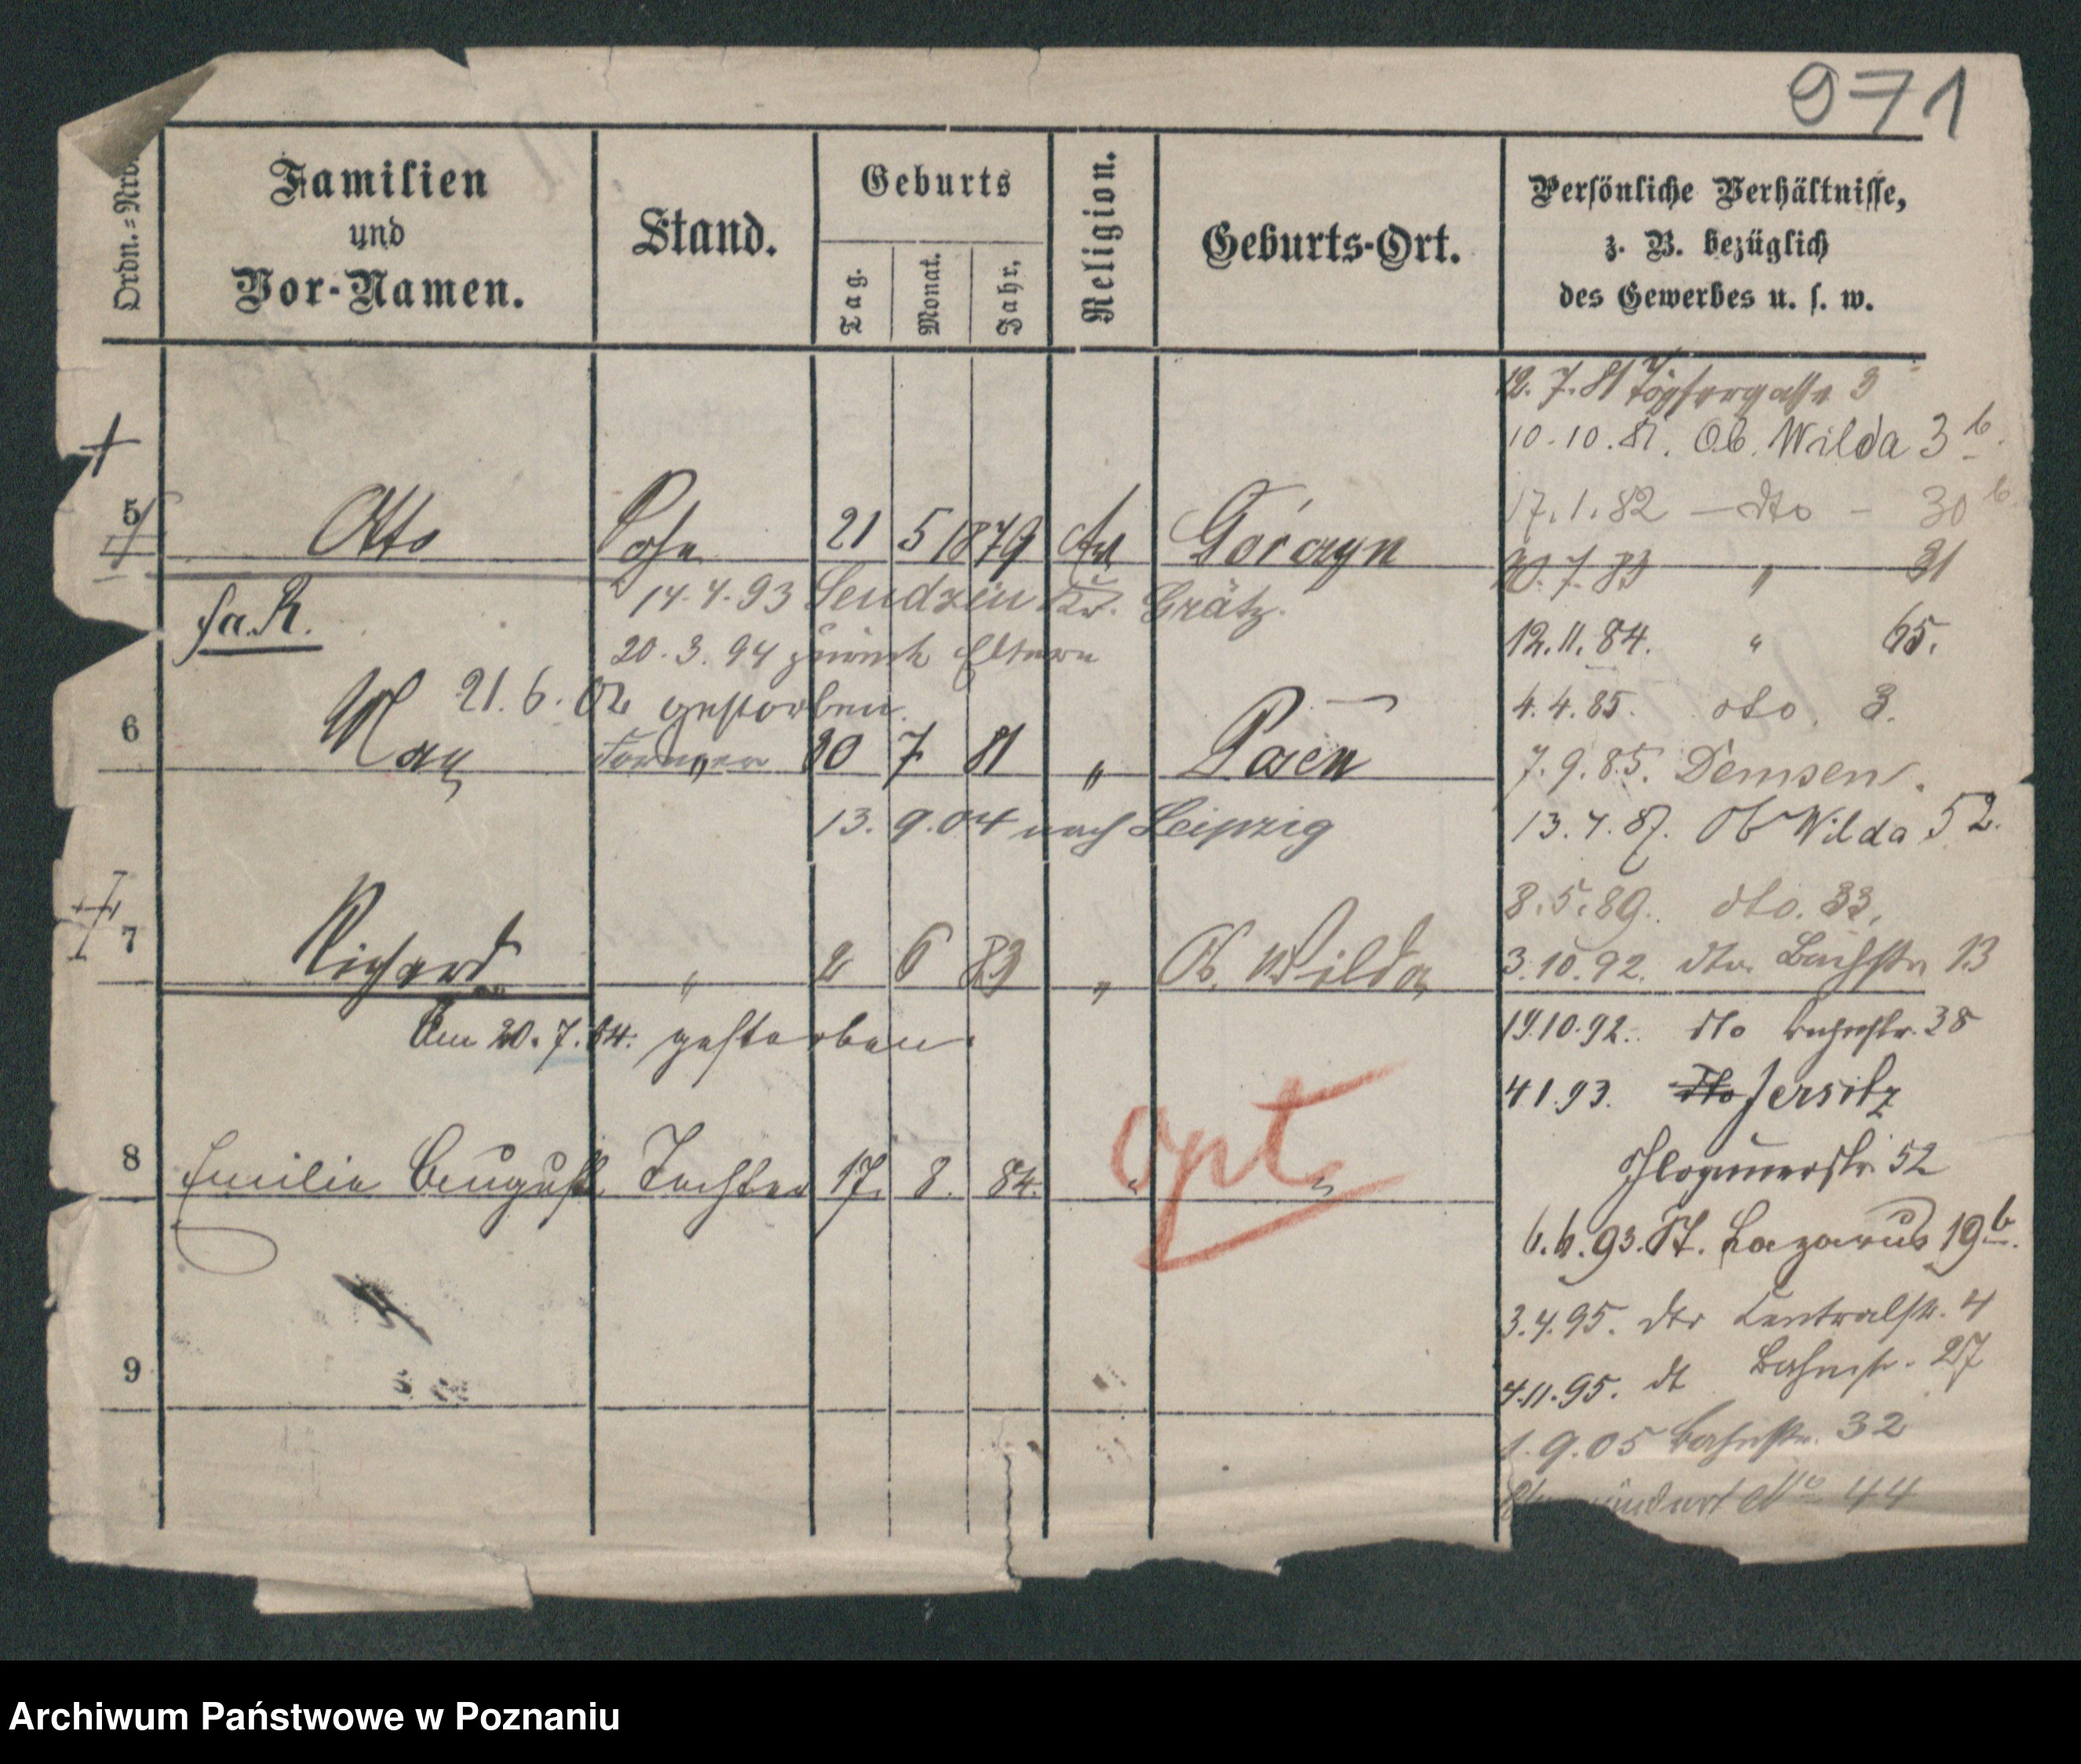 971
Ordn.=Nro.
Familien
und
Vor-Namen.
Stand.
Geburts
Tag.
Monat.
Jahr.
Religion.
Geburts-Ort.
Persönliche Verhältnisse,
z. B. bezüglich
des Gewerbes u. s. w.
12.7.81 Töpfergasse 3
10.10.81. Ob. Wilda 3b.
17.1.82 — dto — 30b
5 Otto Sohn 21 5 1879
20.7.83 " 31
14.4.93 Sendzin Kr. Grätz.
fa. R.
12.11.84. " 65.
20.3.94 zurück Eltern
21.6.02 gestorben.
4.4.85. dto. 3.
6 Max " 20 7 81 " Posen
7.9.85. Demsen.
13.9.04 nach Leipzig
13.4.87. Ob Wilda 52.
8.5.89. dto. 33.
7 Richard " 2 6 83 " Ob. Wilda
3.10.92. dto. Bachstr 13
Am 20.7.84. gestorben.
19.10.92. dto Bahnstr. 38
4.1.93. dto Jersitz
opt
8 Emilie August Tochter 17. 8. 84. " "
Glogauerstr. 52
6.6.93. St. Lazarus 19b.
3.4.95. dto Centralstr. 4
9
4.11.95. dt Bahnstr. 27
1.9.05 Bahnstr. 32
No 44
Archiwum Państwowe w Poznaniu